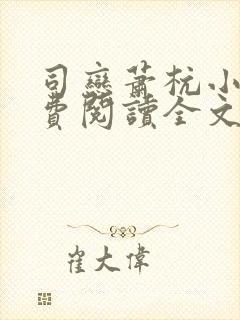 司戀蕭杭小
費閱讀全文
崔大偉